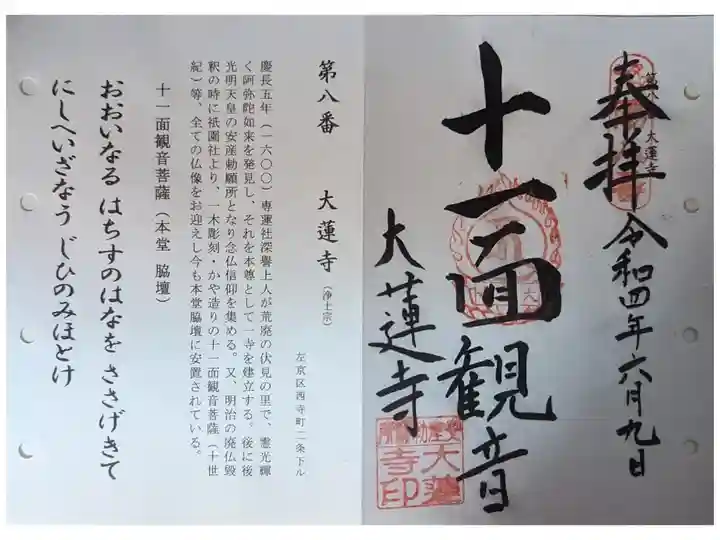 奉拝
令和四年六月九日
大蓮寺
十一面観音
大蓮寺
大蓮
寺印
第八番 大蓮寺(浄土宗)
左京区西寺町二条下ル
慶長五年(一六〇〇)専蓮社深誉上人が荒廃の伏見の里で、霊光輝
く阿弥陀如来を発見し、それを本尊として一寺を建立する。後に後
光明天皇の安産勅願所となり念仏信仰を集める。又、明治の廃仏毀
釈の時に祇園社より、一木彫刻・かや造りの十一面観音菩薩(十世
紀)等、全ての仏像をお迎えし今も本堂脇壇に安置されている。
十一面観音菩薩(本堂 脇壇)
おおいなる はちすのはなを ささげきて
にしへいざなう じひのみほとけ